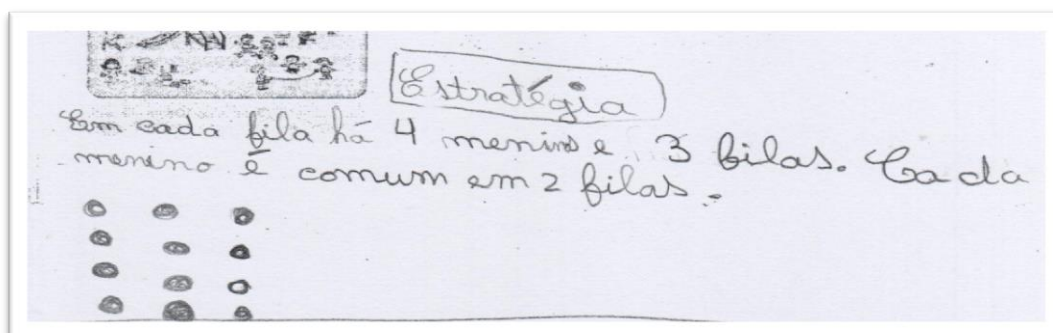 Estratégia
Em cada fila há 4 menins e 3 filas. Cada
menino é comum em 2 filas.